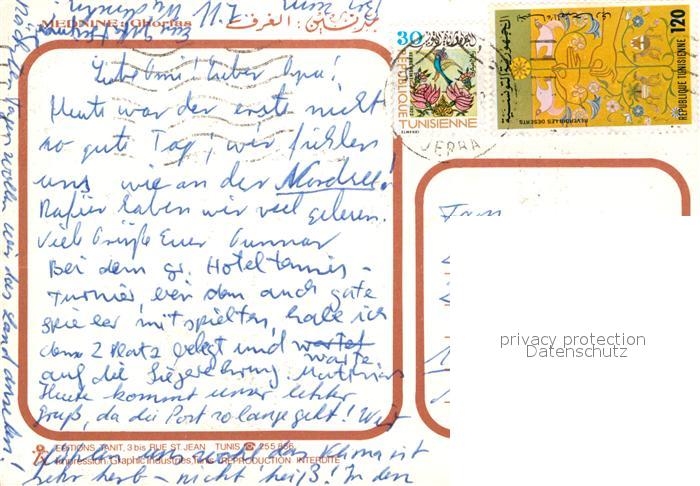 MEDNINE : Ghorfas
مدنين : الغرف
Liebe Omi, lieber Opa!
Heute war der erste nicht
so gute Tag; wir fühlen
uns wie an der Nordsee!
Dafür haben wir viel gelesen.
Viele Grüße Euer Gunnar
Bei dem gr. Hoteltennis-
turnier, bei dem auch gute
spieler mitspielten, habe ich
den 2 Platz belegt und wartet
warte
auf die Siegerehrung. Matthias
Heute kommt unser letzter
Gruß, da die Post so lange geht! Wir
fühlen uns wohl, das Klima ist
sehr herb - nicht heiß! In den
nächsten Tagen wollen wir das Land ansehen!
EDITIONS TANIT, 3 bis RUE ST. JEAN TUNIS ☎ 255 856
Impression: Graphic Industries, Tunis (REPRODUCTION INTERDITE
30
REPUBLIQUE
TUNISIENNE
الجمهورية التونسية
REPUBLIQUE TUNISIENNE 120
REVERDIR LES DESERTS
privacy protection
Datenschutz